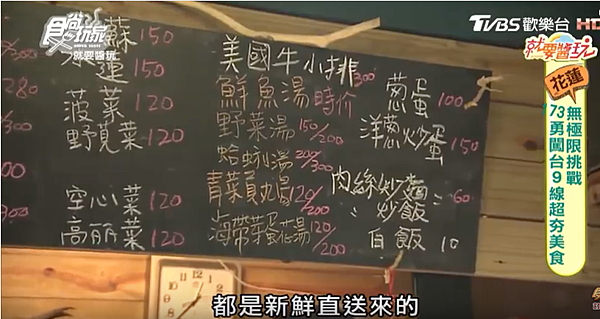 食尚玩家
就要醬玩
TVBS歡樂台 HD
就要醬玩
花蓮
無極限挑戰
73勇闖台9線超夯美食
蘇 150
蓮 150
280
菠菜 120
野莧菜 120
300
空心菜 120
高麗菜 120
美國牛小排 300
鮮魚湯 時价
野菜湯 150/200
蛤蜊湯 200/300
青菜貢丸湯 120/200
海帶芽蛋花湯 120/200
葱蛋 100
洋葱炒蛋 150
肉絲炒麵 60
〃 炒飯
白飯 10
都是新鮮直送來的